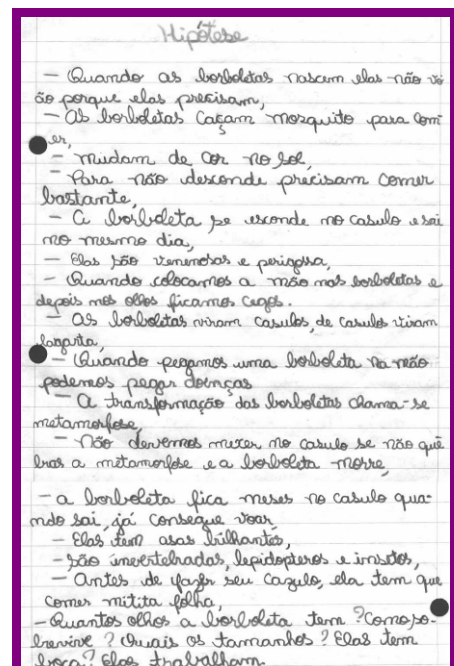 Hipótese
— Quando as borboletas nascem elas não vo
ão porque elas precisam,
— As borboletas caçam mosquito para com
er,
— mudam de cor no sol,
— Para não desconde precisam comer
bastante,
— A borboleta se esconde no casulo e sai
no mesmo dia,
— Elas são venenosas e perigossa,
— Quando colocamos a mão nas borboletas e
depois nos olhos ficamos cegos.
— As borboletas viram casulos, de casulos viram
lagarta,
— Quando pegamos uma borboleta na mão
podemos pegar doenças
— A transformação das borboletas chama-se
metamorfose,
— Não devemos mexer no casulo se não que
bras a metamorfose e a borboleta morre,
— a borboleta fica meses no casulo qua-
ndo sai, já consegue voar,
— Elas tem asas brilhantes,
— são invertebradas, lepidopteros e insetos,
— Antes de fazer seu cazulo, ela tem que
comer mitita folha,
— Quantos olhos a borboleta tem? Como so-
brevive? Quais os tamanhos? Elas tem
boca? Elas trabalham